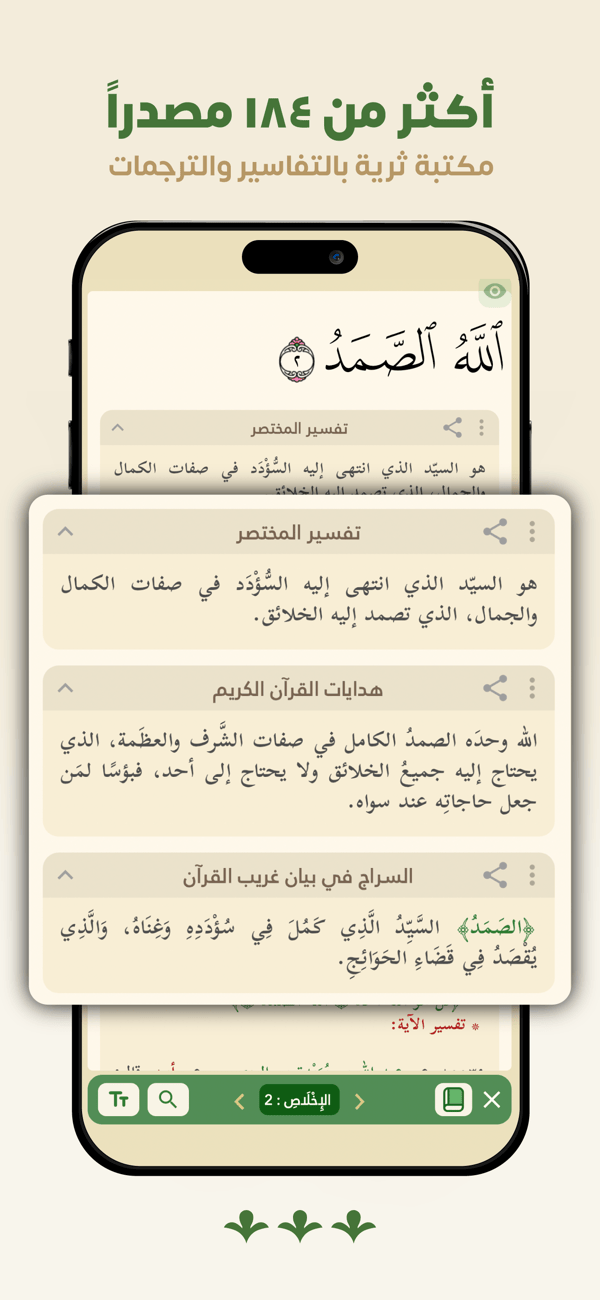 أكثر من ١٨٤ مصدراً
مكتبة ثرية بالتفاسير والترجمات
ٱللَّهُ ٱلصَّمَدُ ٢
تفسير المختصر
هو السيّد الذي انتهى إليه السُّؤْدَد في صفات الكمال
والجمال، الذي تصمد إليه الخلائق.
تفسير المختصر
هو السيّد الذي انتهى إليه السُّؤْدَد في صفات الكمال
والجمال، الذي تصمد إليه الخلائق.
هدايات القرآن الكريم
الله وحدَه الصمدُ الكامل في صفات الشَّرف والعظَمة، الذي
يحتاج إليه جميعُ الخلائق ولا يحتاج إلى أحد، فبؤسًا لمَن
جعل حاجاتِه عند سواه.
السراج في بيان غريب القرآن
﴿الصَمَدُ﴾ السَّيِّدُ الَّذِي كَمُلَ فِي سُؤْدَدِهِ وَغِنَاهُ، وَالَّذِي
يُقْصَدُ فِي قَضَاءِ الحَوَائِجِ.
* تفسير الآية:
الإِخْلَاصِ : 2
Tт